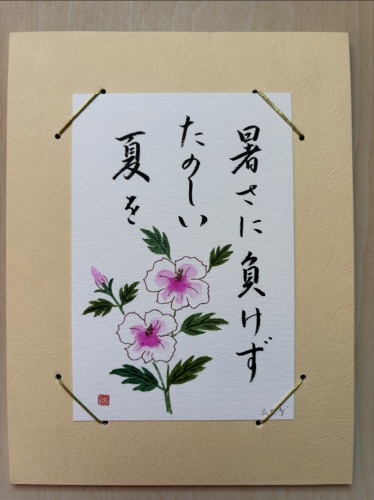 暑さに負けず
たのしい
夏を